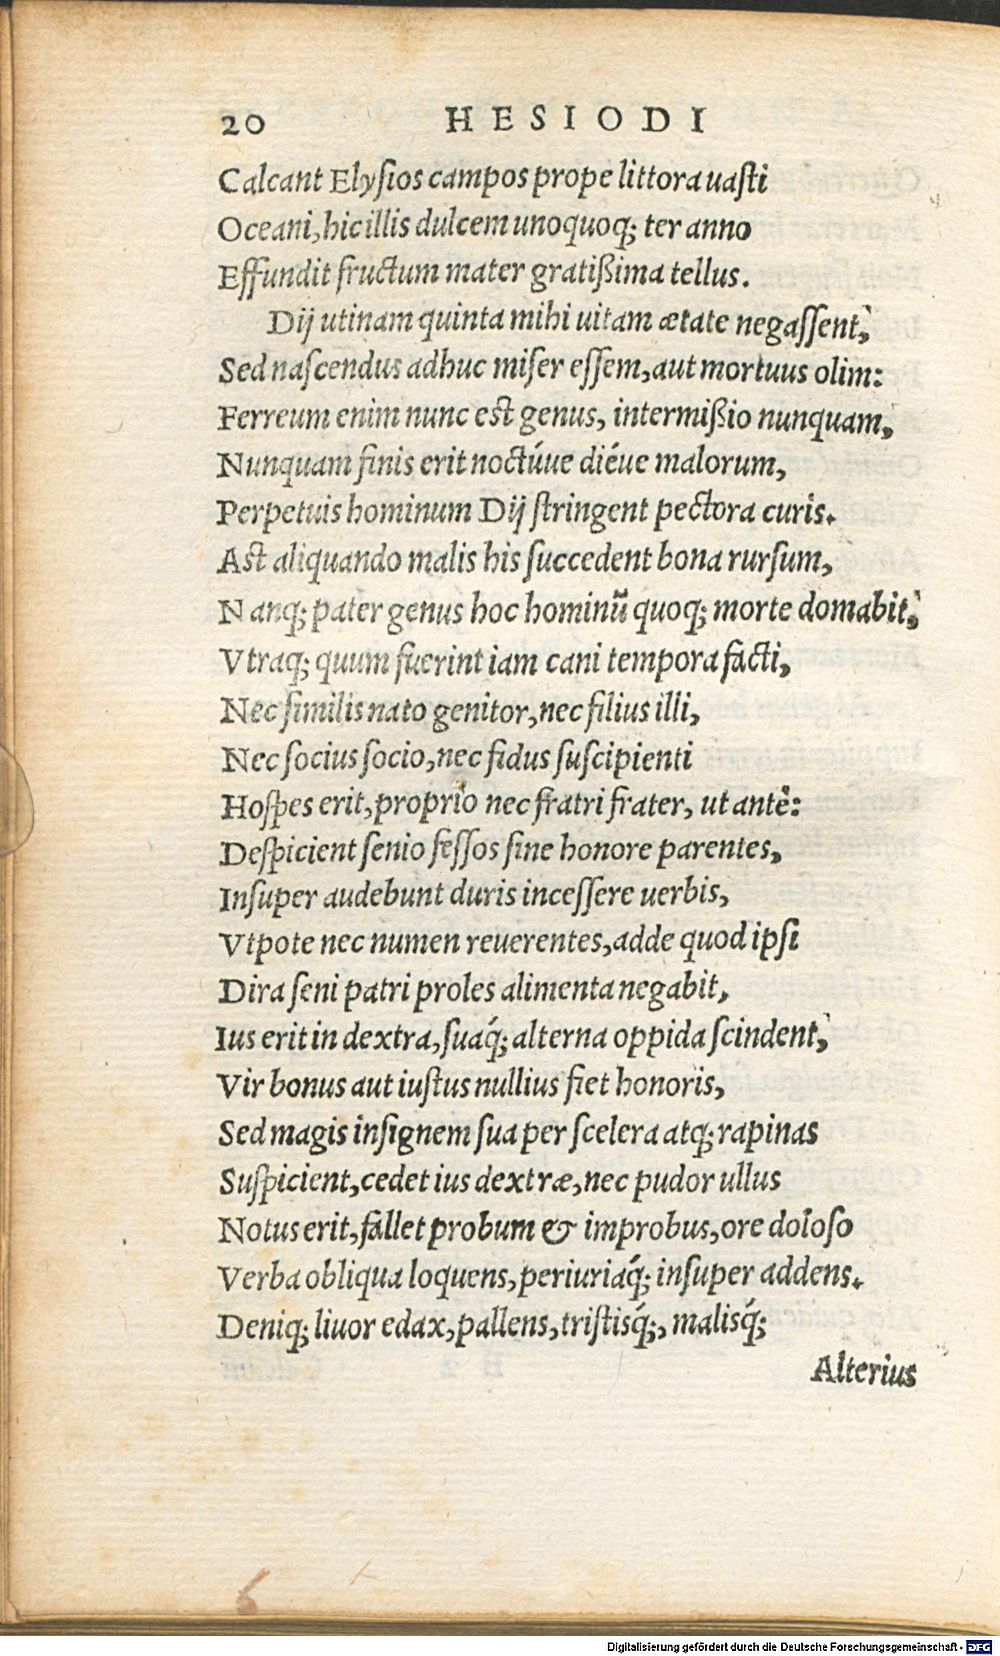 20 HESIODI
Calcant Elyſios campos prope littora uaſti
Oceani, hic illis dulcem unoquoq; ter anno
Effundit fructum mater gratißima tellus.
Dij utinam quinta mihi uitam ætate negaſſent,
Sed naſcendus adhuc miſer eſſem, aut mortuus olim:
Ferreum enim nunc est genus, intermißio nunquam,
Nunquam finis erit noctúue diéue malorum,
Perpetuis hominum Dij ſtringent pectora curis.
Ast aliquando malis his ſuccedent bona rurſum,
Nanq; pater genus hoc hominũ quoq; morte domabit,
Vtraq; quum fuerint iam cani tempora facti,
Nec ſimilis nato genitor, nec filius illi,
Nec ſocius ſocio, nec fidus ſuſcipienti
Hoſpes erit, proprio nec fratri frater, ut antè:
Deſpicient ſenio feſſos ſine honore parentes,
Inſuper audebunt duris inceſſere uerbis,
Vtpote nec numen reuerentes, adde quod ipſi
Dira ſeni patri proles alimenta negabit,
Ius erit in dextra, ſuaq́; alterna oppida ſcindent,
Vir bonus aut iuſtus nullius fiet honoris,
Sed magis inſignem ſua per ſcelera atq; rapinas
Suſpicient, cedet ius dextræ, nec pudor ullus
Notus erit, fallet probum & improbus, ore doloſo
Verba obliqua loquens, periuriaq́; inſuper addens.
Deniq; liuor edax, pallens, triſtisq́;, malisq́;
Alterius
6
Digitalisierung gefördert durch die Deutsche Forschungsgemeinschaft - DFG